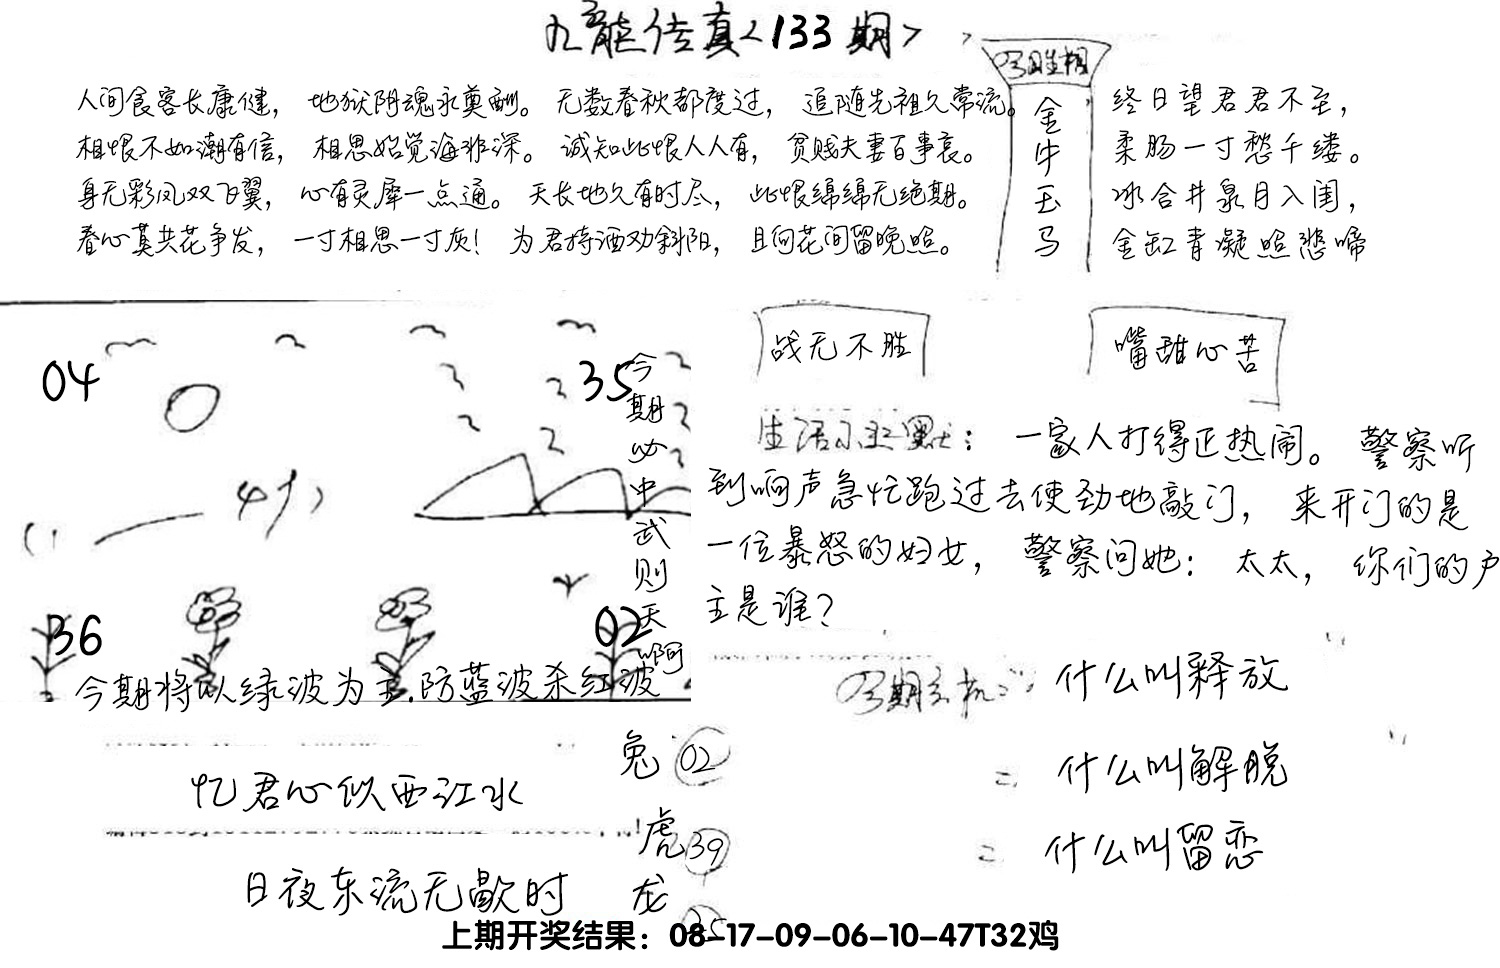 九龙传真<133期>
人间食客长康健，地狱阴魂永奠酬。无数春秋都度过，追随先祖久常流。
相恨不如潮有信，相思始觉海非深。诚知此恨人人有，贫贱夫妻百事哀。
身无彩凤双飞翼，心有灵犀一点通。天长地久有时尽，此恨绵绵无绝期。
春心莫共花争发，一寸相思一寸灰！为君持酒劝斜阳，且向花间留晚照。
金牛玉马
终日望君君不至，
柔肠一寸愁千缕。
冰合井泉月入闺，
金缸青凝照悲啼
04
35
36
02
今期必中武则天啊
今期将以绿波为主.防蓝波杀红波
战无不胜
嘴甜心苦
生活幽默：一家人打得正热闹。警察听
到响声急忙跑过去使劲地敲门，来开门的是
一位暴怒的妇女，警察问她：太太，你们的户
主是谁？
什么叫释放
二 什么叫解脱
二 什么叫留恋
忆君心似西江水
日夜东流无歇时
兔 02
虎 39
龙 35
上期开奖结果：08-17-09-06-10-47T32鸡